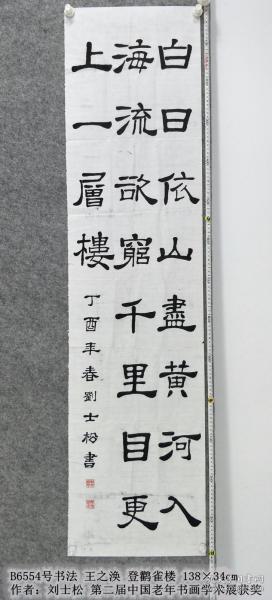 白日依山盡黄河入
海流欲窮千里目更
上一層樓
丁酉年春劉士松書
B6554号书法 王之涣 登鹳雀楼 138×34cm
作者：刘士松 第二届中国老年书画学术展获奖